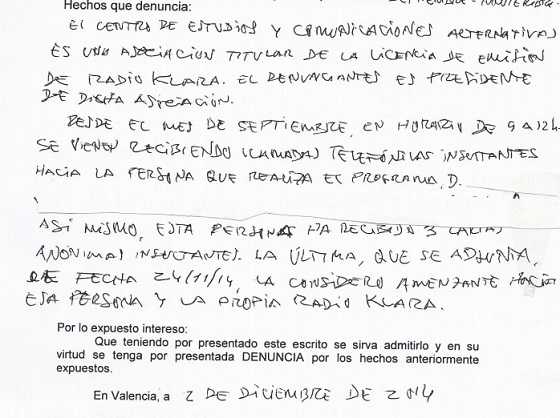 SEPTIEMBRE - NOVIEMBRE.
Hechos que denuncia:
EL CENTRO DE ESTUDIOS Y COMUNICACIONES ALTERNATIVAS
ES UNA ASOCIACION TITULAR DE LA LICENCIA DE EMISIÓN
DE RADIO KLARA. EL DENUNCIANTES ES PRESIDENTE
DE DICHA ASOCIACIÓN.
DESDE EL MES DE SEPTIEMBRE, EN HORARIO DE 9 A 12H
SE VIENEN RECIBIENDO LLAMADAS TELEFÓNICAS INSULTANTES
HACIA LA PERSONA QUE REALIZA EL PROGRAMA, D.
ASI MISMO, ESTA PERSONA HA RECIBIDO 3 CARTAS
ANÓNIMAS INSULTANTES. LA ÚLTIMA, QUE SE ADJUNTA,
DE FECHA 24/11/14, LA CONSIDERO AMENZANTE HACIA
ESA PERSONA Y LA PROPIA RADIO KLARA.
Por lo expuesto intereso:
Que teniendo por presentado este escrito se sirva admitirlo y en su
virtud se tenga por presentada DENUNCIA por los hechos anteriormente
expuestos.
En Valencia, a 2 DE DICIEMBRE DE 2014